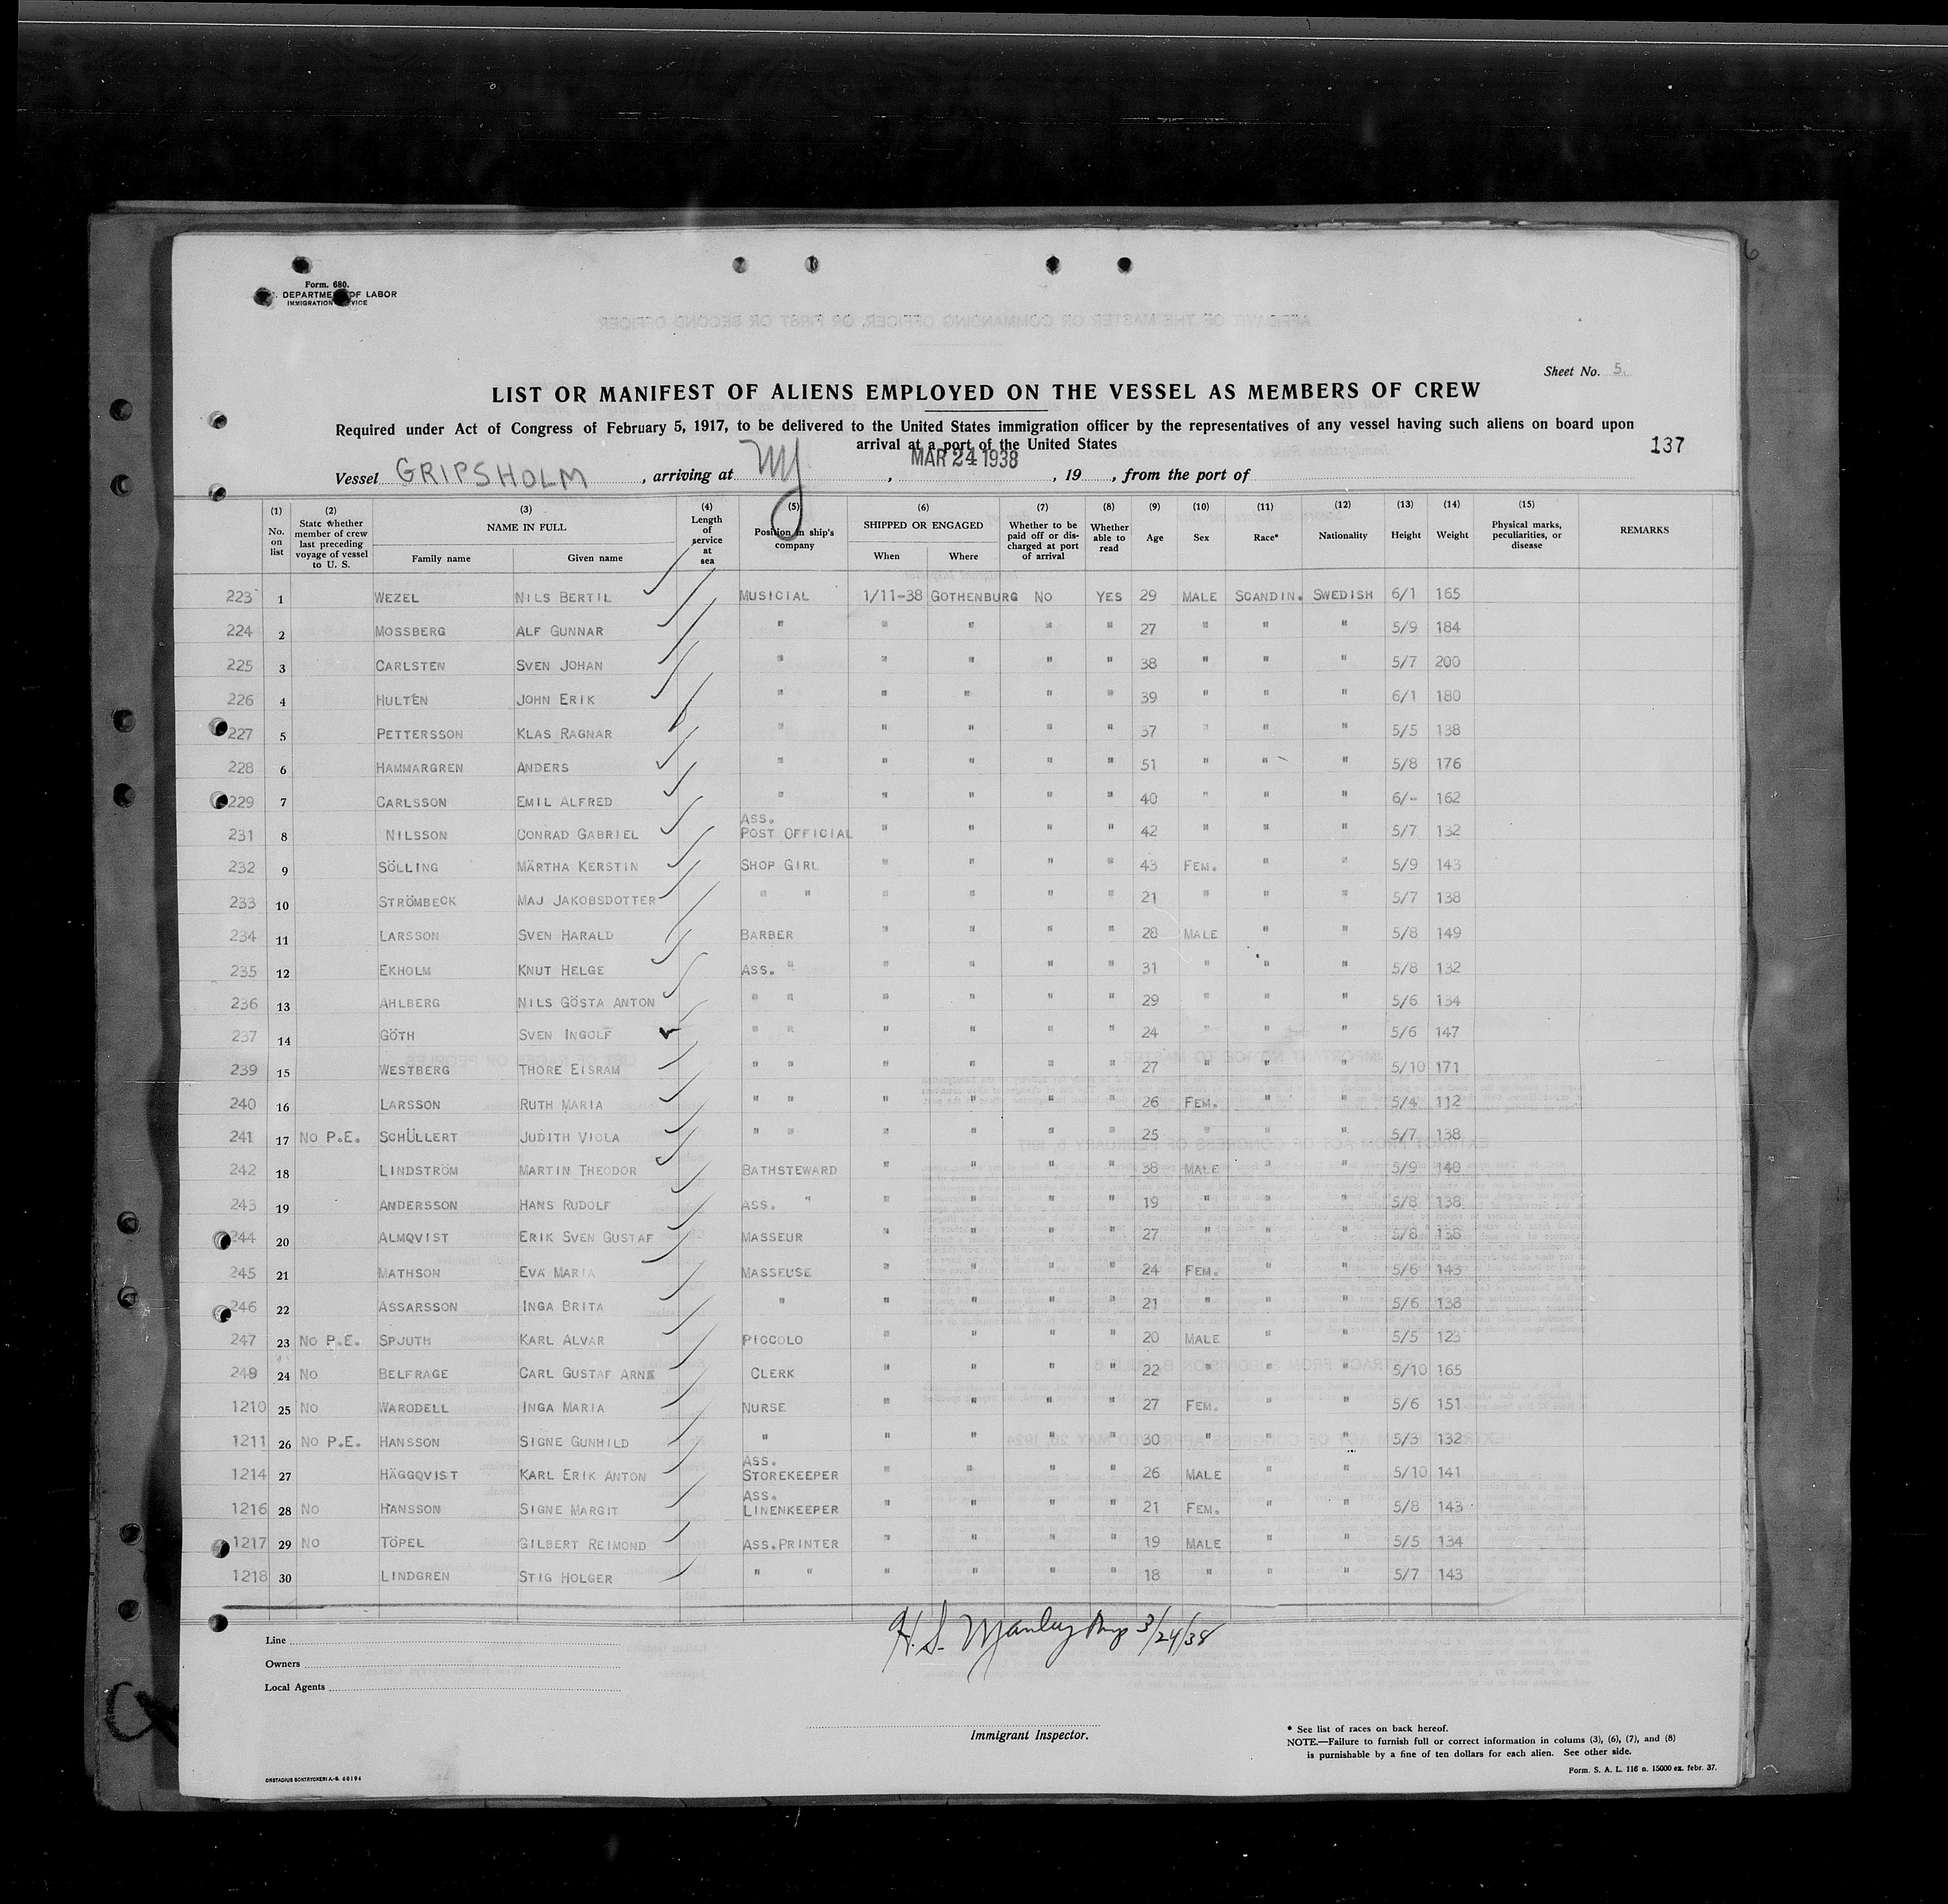 Form. 680.
DEPARTMENT OF LABOR
IMMIGRATION SERVICE
Sheet No. 5.
LIST OR MANIFEST OF ALIENS EMPLOYED ON THE VESSEL AS MEMBERS OF CREW
Required under Act of Congress of February 5, 1917, to be delivered to the United States immigration officer by the representatives of any vessel having such aliens on board upon
arrival at a port of the United States
137
Vessel GRIPSHOLM , arriving at NY , MAR 24 1938 , 19 , from the port of
(1) No. on list (2) State whether member of crew last preceding voyage of vessel to U. S. (3) NAME IN FULL Family name Given name (4) Length of service at sea (5) Position in ship's company (6) SHIPPED OR ENGAGED When Where (7) Whether to be paid off or discharged at port of arrival (8) Whether able to read (9) Age (10) Sex (11) Race* (12) Nationality (13) Height (14) Weight (15) Physical marks, peculiarities, or disease REMARKS
223 1 WEZEL NILS BERTIL MUSICIAL 1/11-38 GOTHENBURG NO YES 29 MALE SCANDIN. SWEDISH 6/1 165
224 2 MOSSBERG ALF GUNNAR " " " " " 27 " " " 5/9 184
225 3 CARLSTEN SVEN JOHAN " " " " " 38 " " " 5/7 200
226 4 HULTÉN JOHN ERIK " " " " " 39 " " " 6/1 180
227 5 PETTERSSON KLAS RAGNAR " " " " " 37 " " " 5/5 138
228 6 HAMMARGREN ANDERS " " " " " 51 " " " 5/8 176
229 7 CARLSSON EMIL ALFRED " " " " " 40 " " " 6/- 162
231 8 NILSSON CONRAD GABRIEL ASS. POST OFFICIAL " " " " 42 " " " 5/7 132
232 9 SÖLLING MÄRTHA KERSTIN SHOP GIRL " " " " 43 FEM. " " 5/9 143
233 10 STRÖMBECK MAJ JAKOBSDOTTER " " " " " " 21 " " " 5/7 138
234 11 LARSSON SVEN HARALD BARBER " " " " 28 MALE " " 5/8 149
235 12 EKHOLM KNUT HELGE ASS. " " " " " 31 " " " 5/8 132
236 13 AHLBERG NILS GÖSTA ANTON " " " " " " 29 " " " 5/6 134
237 14 GÖTH SVEN INGOLF " " " " " " 24 " " " 5/6 147
239 15 WESTBERG THORE EISRAM " " " " " " 27 " " " 5/10 171
240 16 LARSSON RUTH MARIA " " " " " " 26 FEM. " " 5/4 112
241 17 NO P.E. SCHÜLLERT JUDITH VIOLA " " " " " " 25 " " " 5/7 138
242 18 LINDSTRÖM MARTIN THEODOR BATHSTEWARD " " " " 38 MALE " " 5/9 140
243 19 ANDERSSON HANS RUDOLF ASS. " " " " " 19 " " " 5/8 138
244 20 ALMQVIST ERIK SVEN GUSTAF MASSEUR " " " " 27 " " " 5/8 138
245 21 MATHSON EVA MARIA MASSEUSE " " " " 24 FEM. " " 5/6 143
246 22 ASSARSSON INGA BRITA " " " " " 21 " " " 5/6 138
247 23 NO P.E. SPJUTH KARL ALVAR PICCOLO " " " " 20 MALE " " 5/5 123
249 24 NO BELFRAGE CARL GUSTAF ARNE CLERK " " " " 22 " " " 5/10 165
1210 25 NO WARODELL INGA MARIA NURSE " " " " 27 FEM. " " 5/6 151
1211 26 NO P.E. HANSSON SIGNE GUNHILD " " " " " 30 " " " 5/3 132
1214 27 HÄGGQVIST KARL ERIK ANTON ASS. STOREKEEPER " " " " 26 MALE " " 5/10 141
1216 28 NO HANSSON SIGNE MARGIT ASS. LINENKEEPER " " " " 21 FEM. " " 5/8 143
1217 29 NO TÖPEL GILBERT REIMOND ASS.PRINTER " " " " 19 MALE " " 5/5 134
1218 30 LINDGREN STIG HOLGER " " " " " " 18 " " " 5/7 143
H. S. Manley 3/24/38
Line
Owners
Local Agents
Immigrant Inspector.
* See list of races on back hereof.
NOTE.—Failure to furnish full or correct information in colums (3), (6), (7), and (8)
is punishable by a fine of ten dollars for each alien. See other side.
Form. S. A. L. 116 n. 15000 ex. febr. 37.
ORSTADIUS BOKTRYCKERI A.-B. 60194